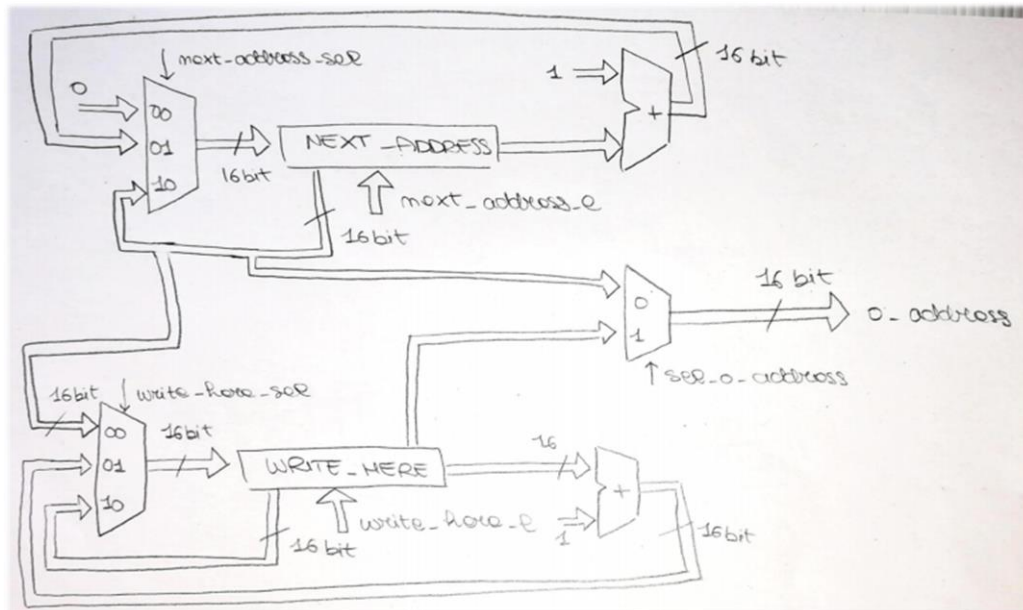 next_address_sel
0
00
01
10
16bit
NEXT_ADDRESS
next_address_e
16bit
1
+
16 bit
0
1
sel_o_address
16 bit
o_address
16bit
write_here_sel
00
01
10
16bit
WRITE_HERE
write_here_e
16 bit
16
1
+
16bit